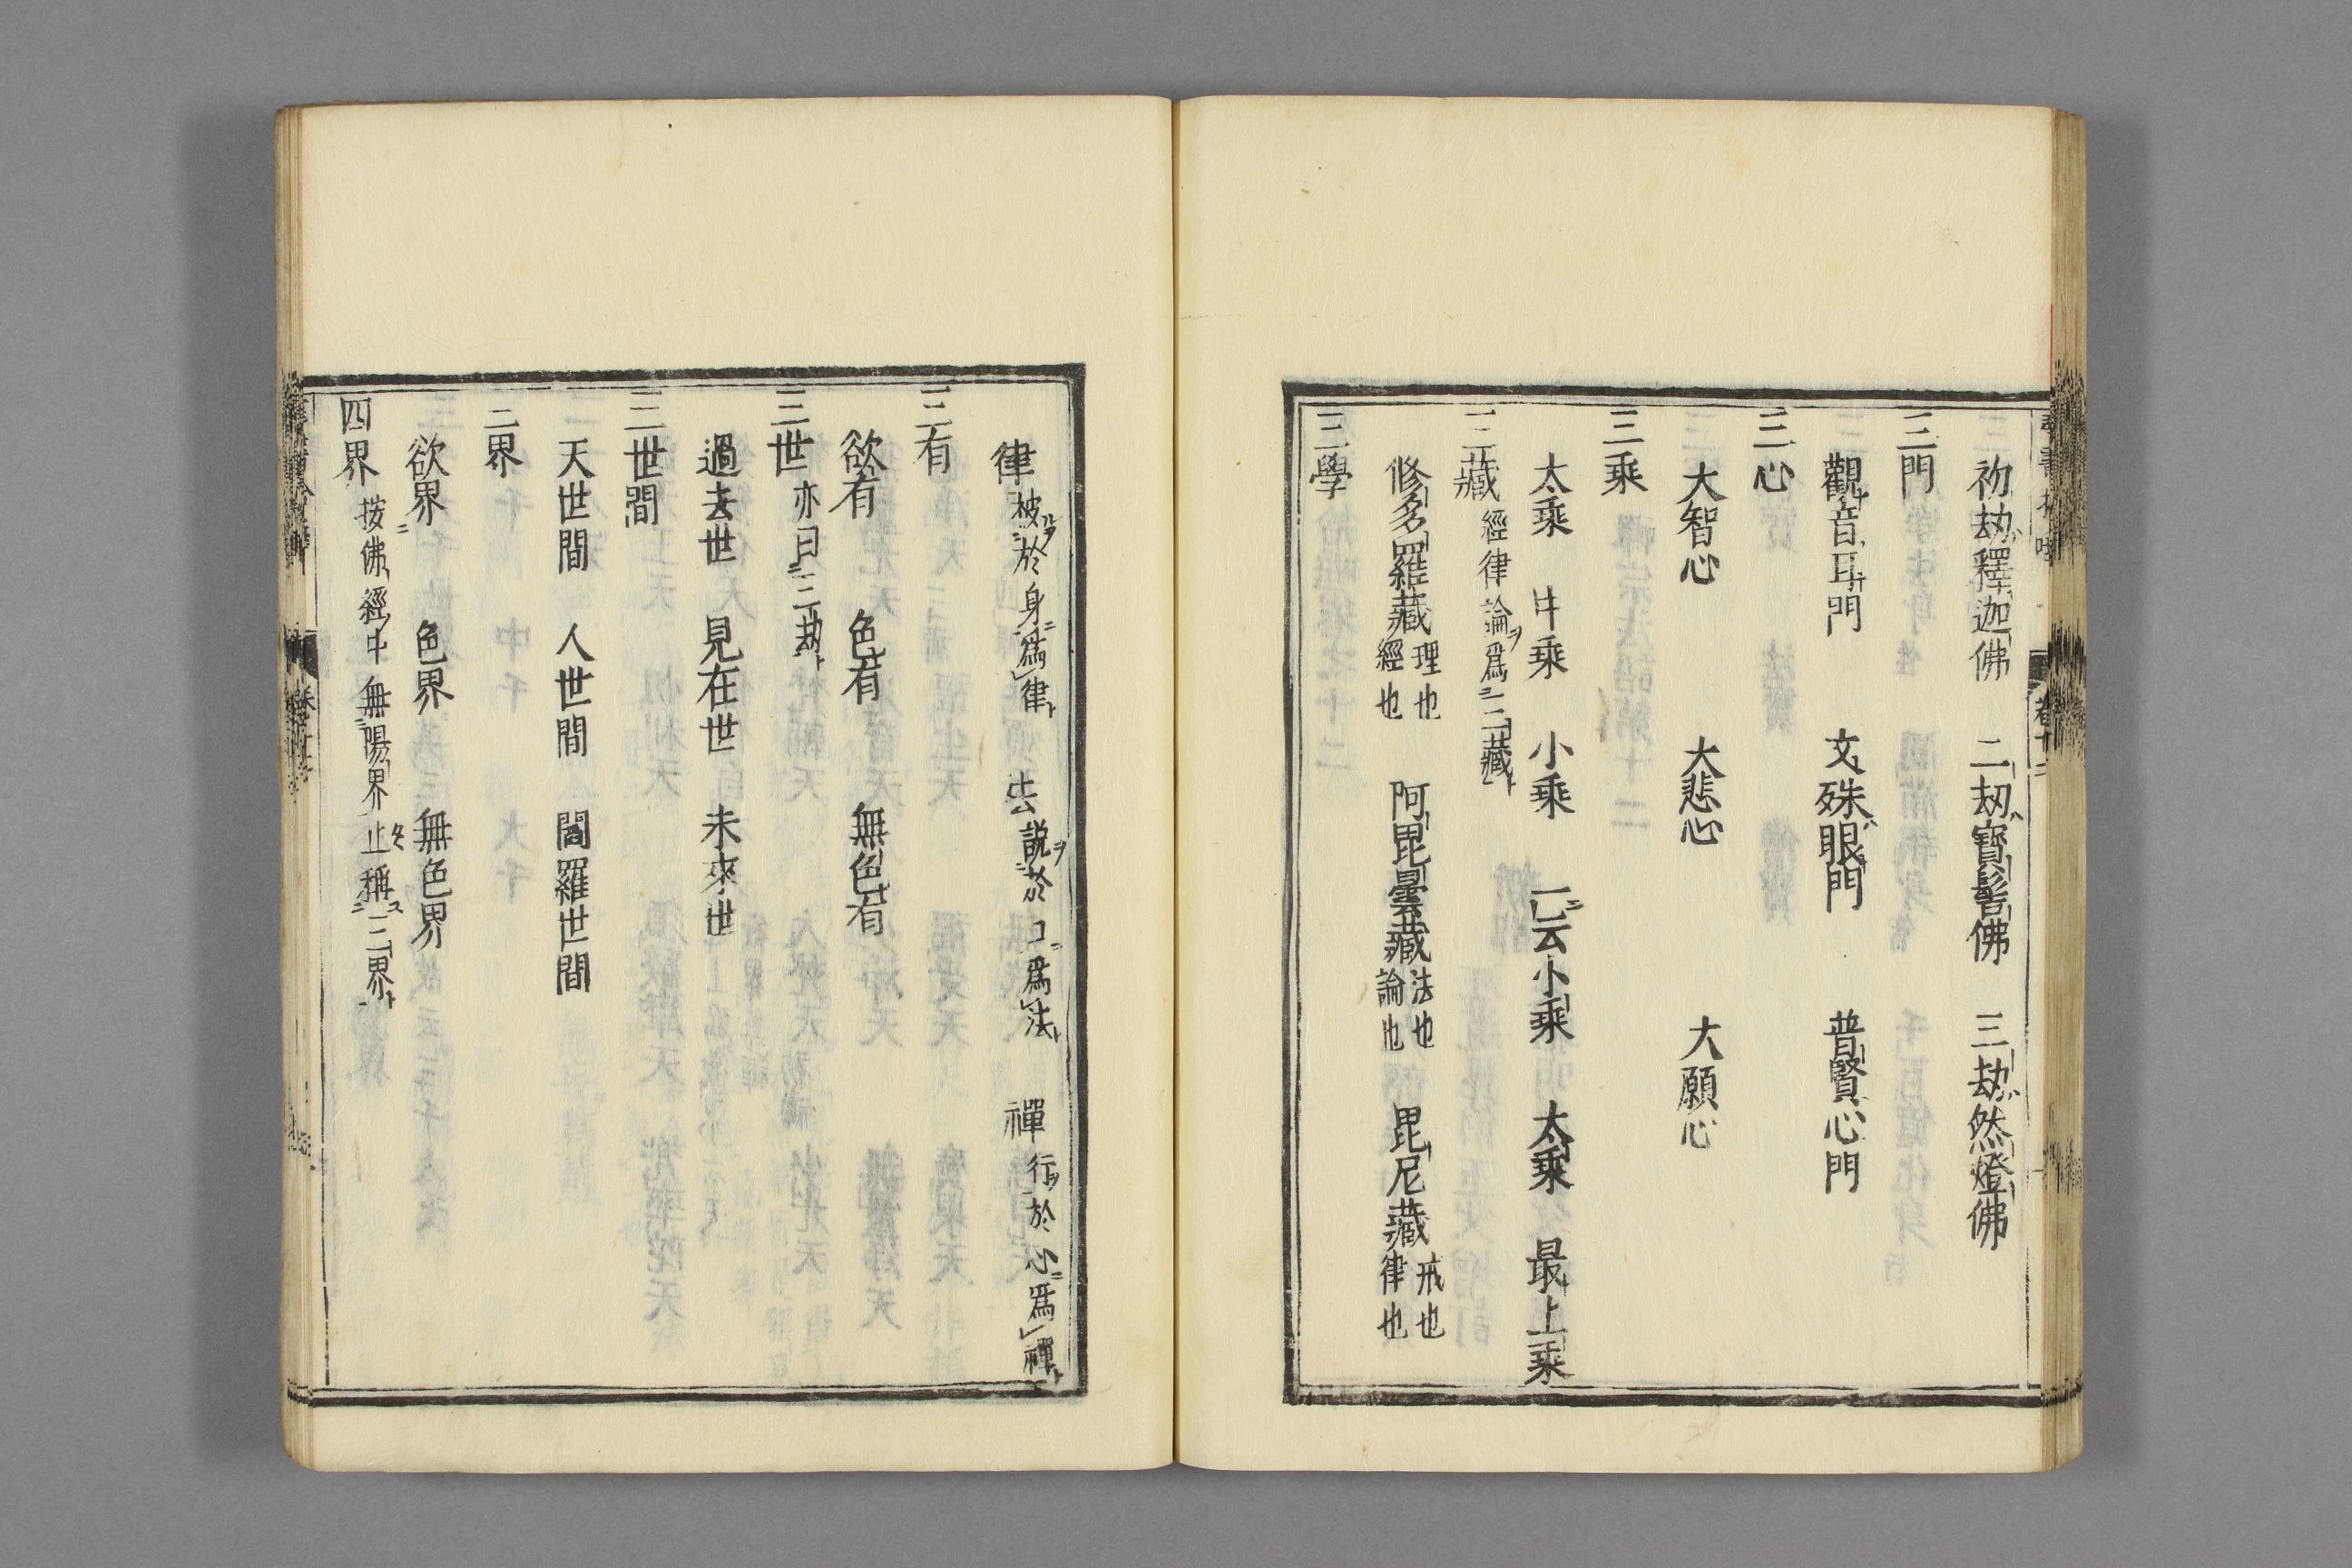 初劫釋迦佛　二劫寶髻佛　三劫然燈佛
三門
觀音耳門　文殊眼門　普賢心門
三心
大智心　大悲心　大願心
三乘
太乘　中乘　小乘　一云小乘　太乘　最上乘
三藏 經律論ヲ爲三藏ト
修多羅藏 理也 經也　阿毘曇藏 法也 論也　毘尼藏 戒也 律也
三學
律 被ルヲ於身ニ爲律ト　法 説ヲ於口ニ爲法ト　禪 行於心ニ爲禪ト
三有
欲有　色有　無色有
三世 亦曰三劫ト
過去世　見在世　未來世
三世間
天世間　人世間　閻羅世間
三界
欲界　色界　無色界
四界 按ニ佛經中無陽界止タ稱ス三界ト